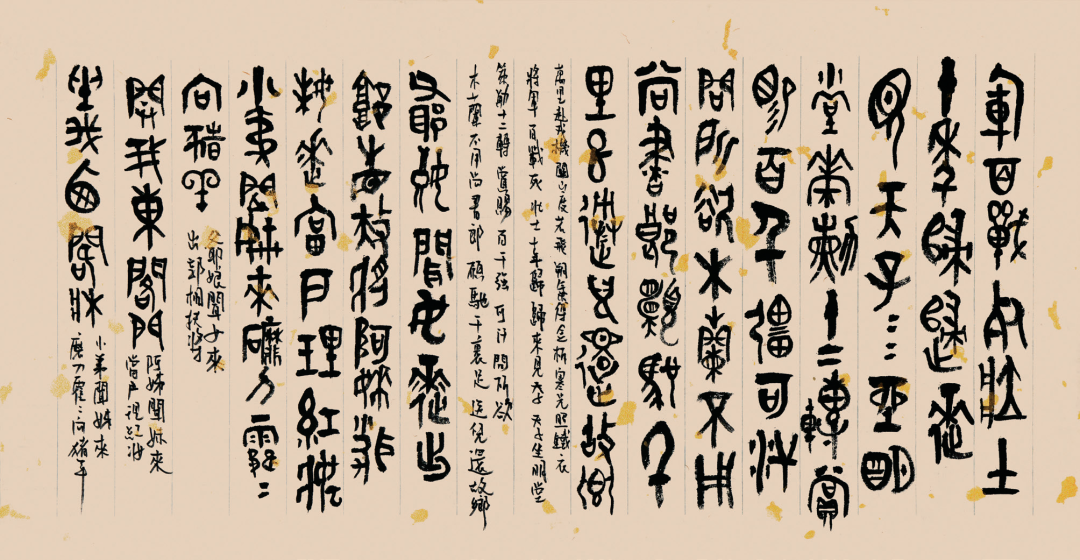 軍百戰死壯士
十年歸歸來
見天子〻〻坐明
堂策勳十二轉賞
轉
賜百千彊可汗
問所欲木蘭不用
尚書郎願馳千
里足送兒還故鄉
萬里赴戎機關山度若飛朔氣傳金柝寒光照鐵衣
將軍百戰死壯士十年歸歸來見天子天子坐明堂
策勳十二轉賞賜百千強可汗問所欲
木蘭不用尚書郎願馳千裏足送兒還故鄉
爺娘聞女來出
郭相扶將阿姊聞
妹來當戶理紅妝
小弟聞姊來磨刀霍〻
向豬羊
爺娘聞女來
出郭相扶將
開我東閣門
阿姊聞妹來
當戶理紅妝
坐我西閣床
小弟聞姊來
磨刀霍〻向豬羊